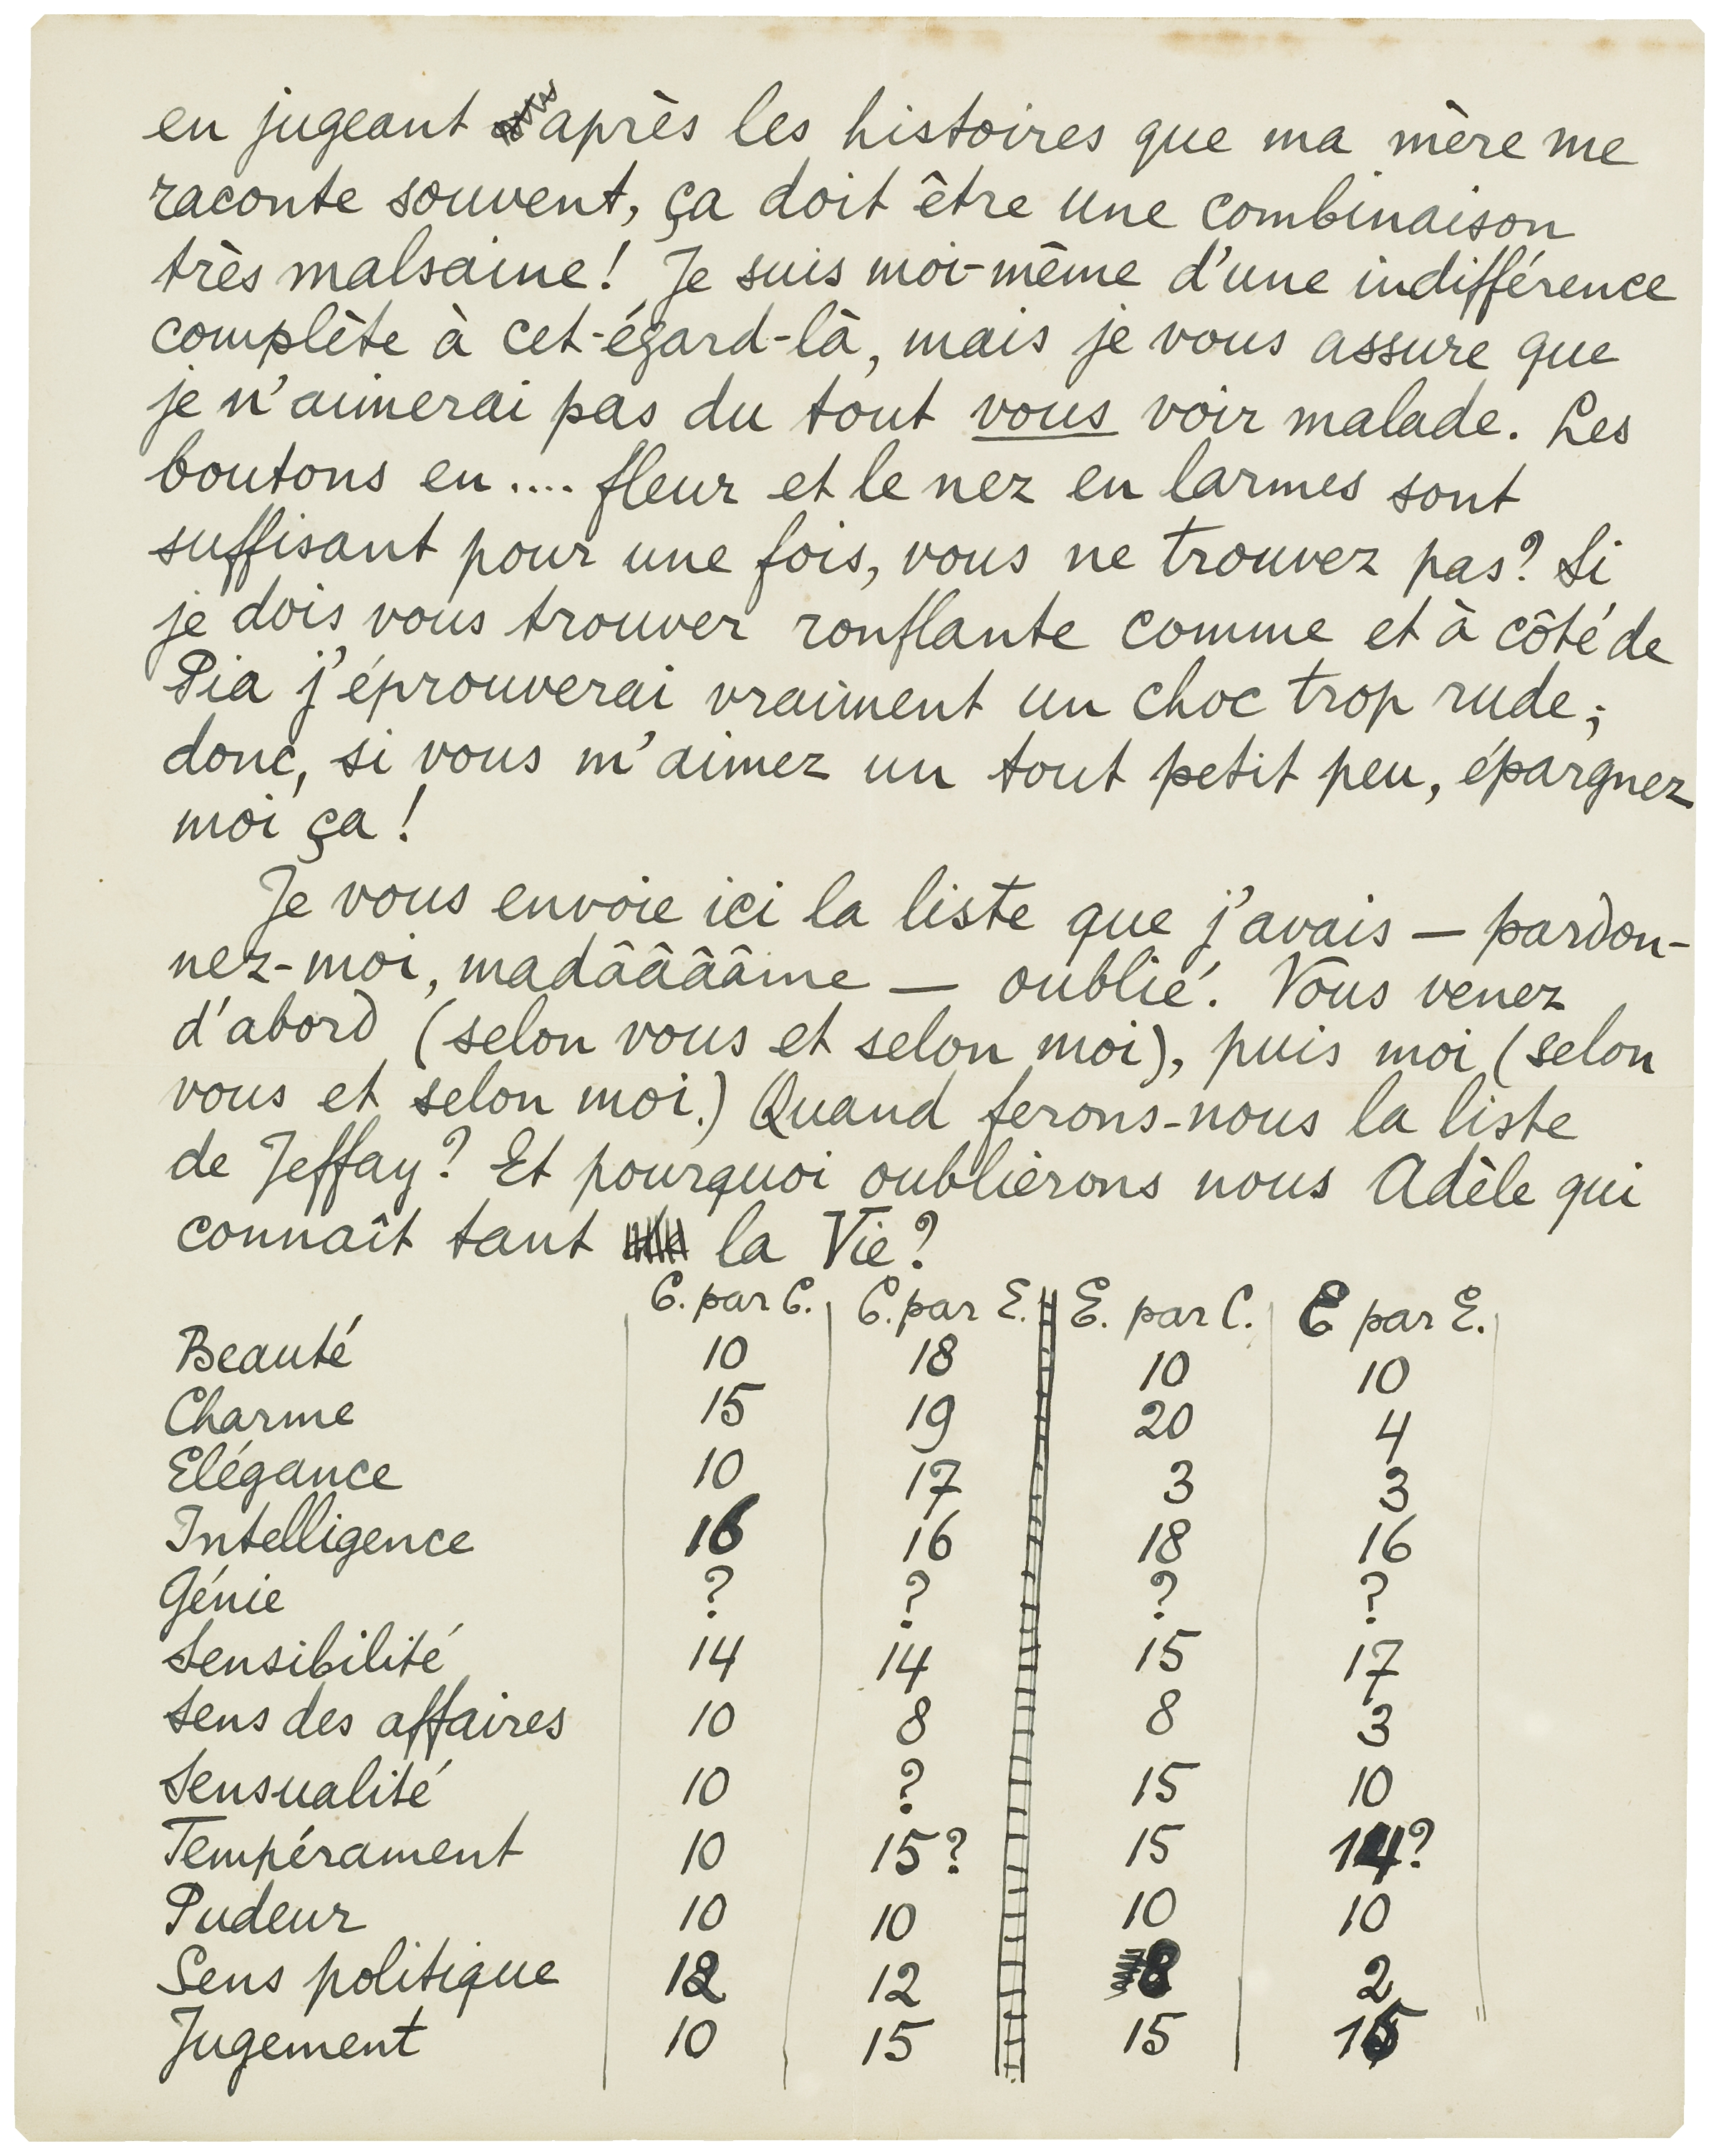 en jugeant d'après les histoires que ma mère me
raconte souvent, ça doit être une combinaison
très malsaine! Je suis moi-même d'une indifférence
complète à cet-égard-là, mais je vous assure que
je n'aimerai pas du tout vous voir malade. Les
boutons en .... fleur et le nez en larmes sont
suffisant pour une fois, vous ne trouvez pas? Si
je dois vous trouver ronflante comme et à côté de
Pia j'éprouverai vraiment un choc trop rude;
donc, si vous m'aimez un tout petit peu, épargnez
moi ça!
Je vous envoie ici la liste que j'avais — pardon-
nez-moi, madâââââme — oublié. Vous venez
d'abord (selon vous et selon moi), puis moi (selon
vous et selon moi.) Quand ferons-nous la liste
de Jeffay? Et pourquoi oublierons nous Adèle qui
connaît tant la Vie?
C. par C. C. par E. E. par C. E par E.
Beauté 10 18 10 10
Charme 15 19 20 4
Elégance 10 17 3 3
Intelligence 16 16 18 16
Génie ? ? ? ?
Sensibilité 14 14 15 17
Sens des affaires 10 8 8 3
Sensualité 10 ? 15 10
Tempérament 10 15? 15 14?
Pudeur 10 10 10 10
Sens politique 12 12 8 2
Jugement 10 15 15 15